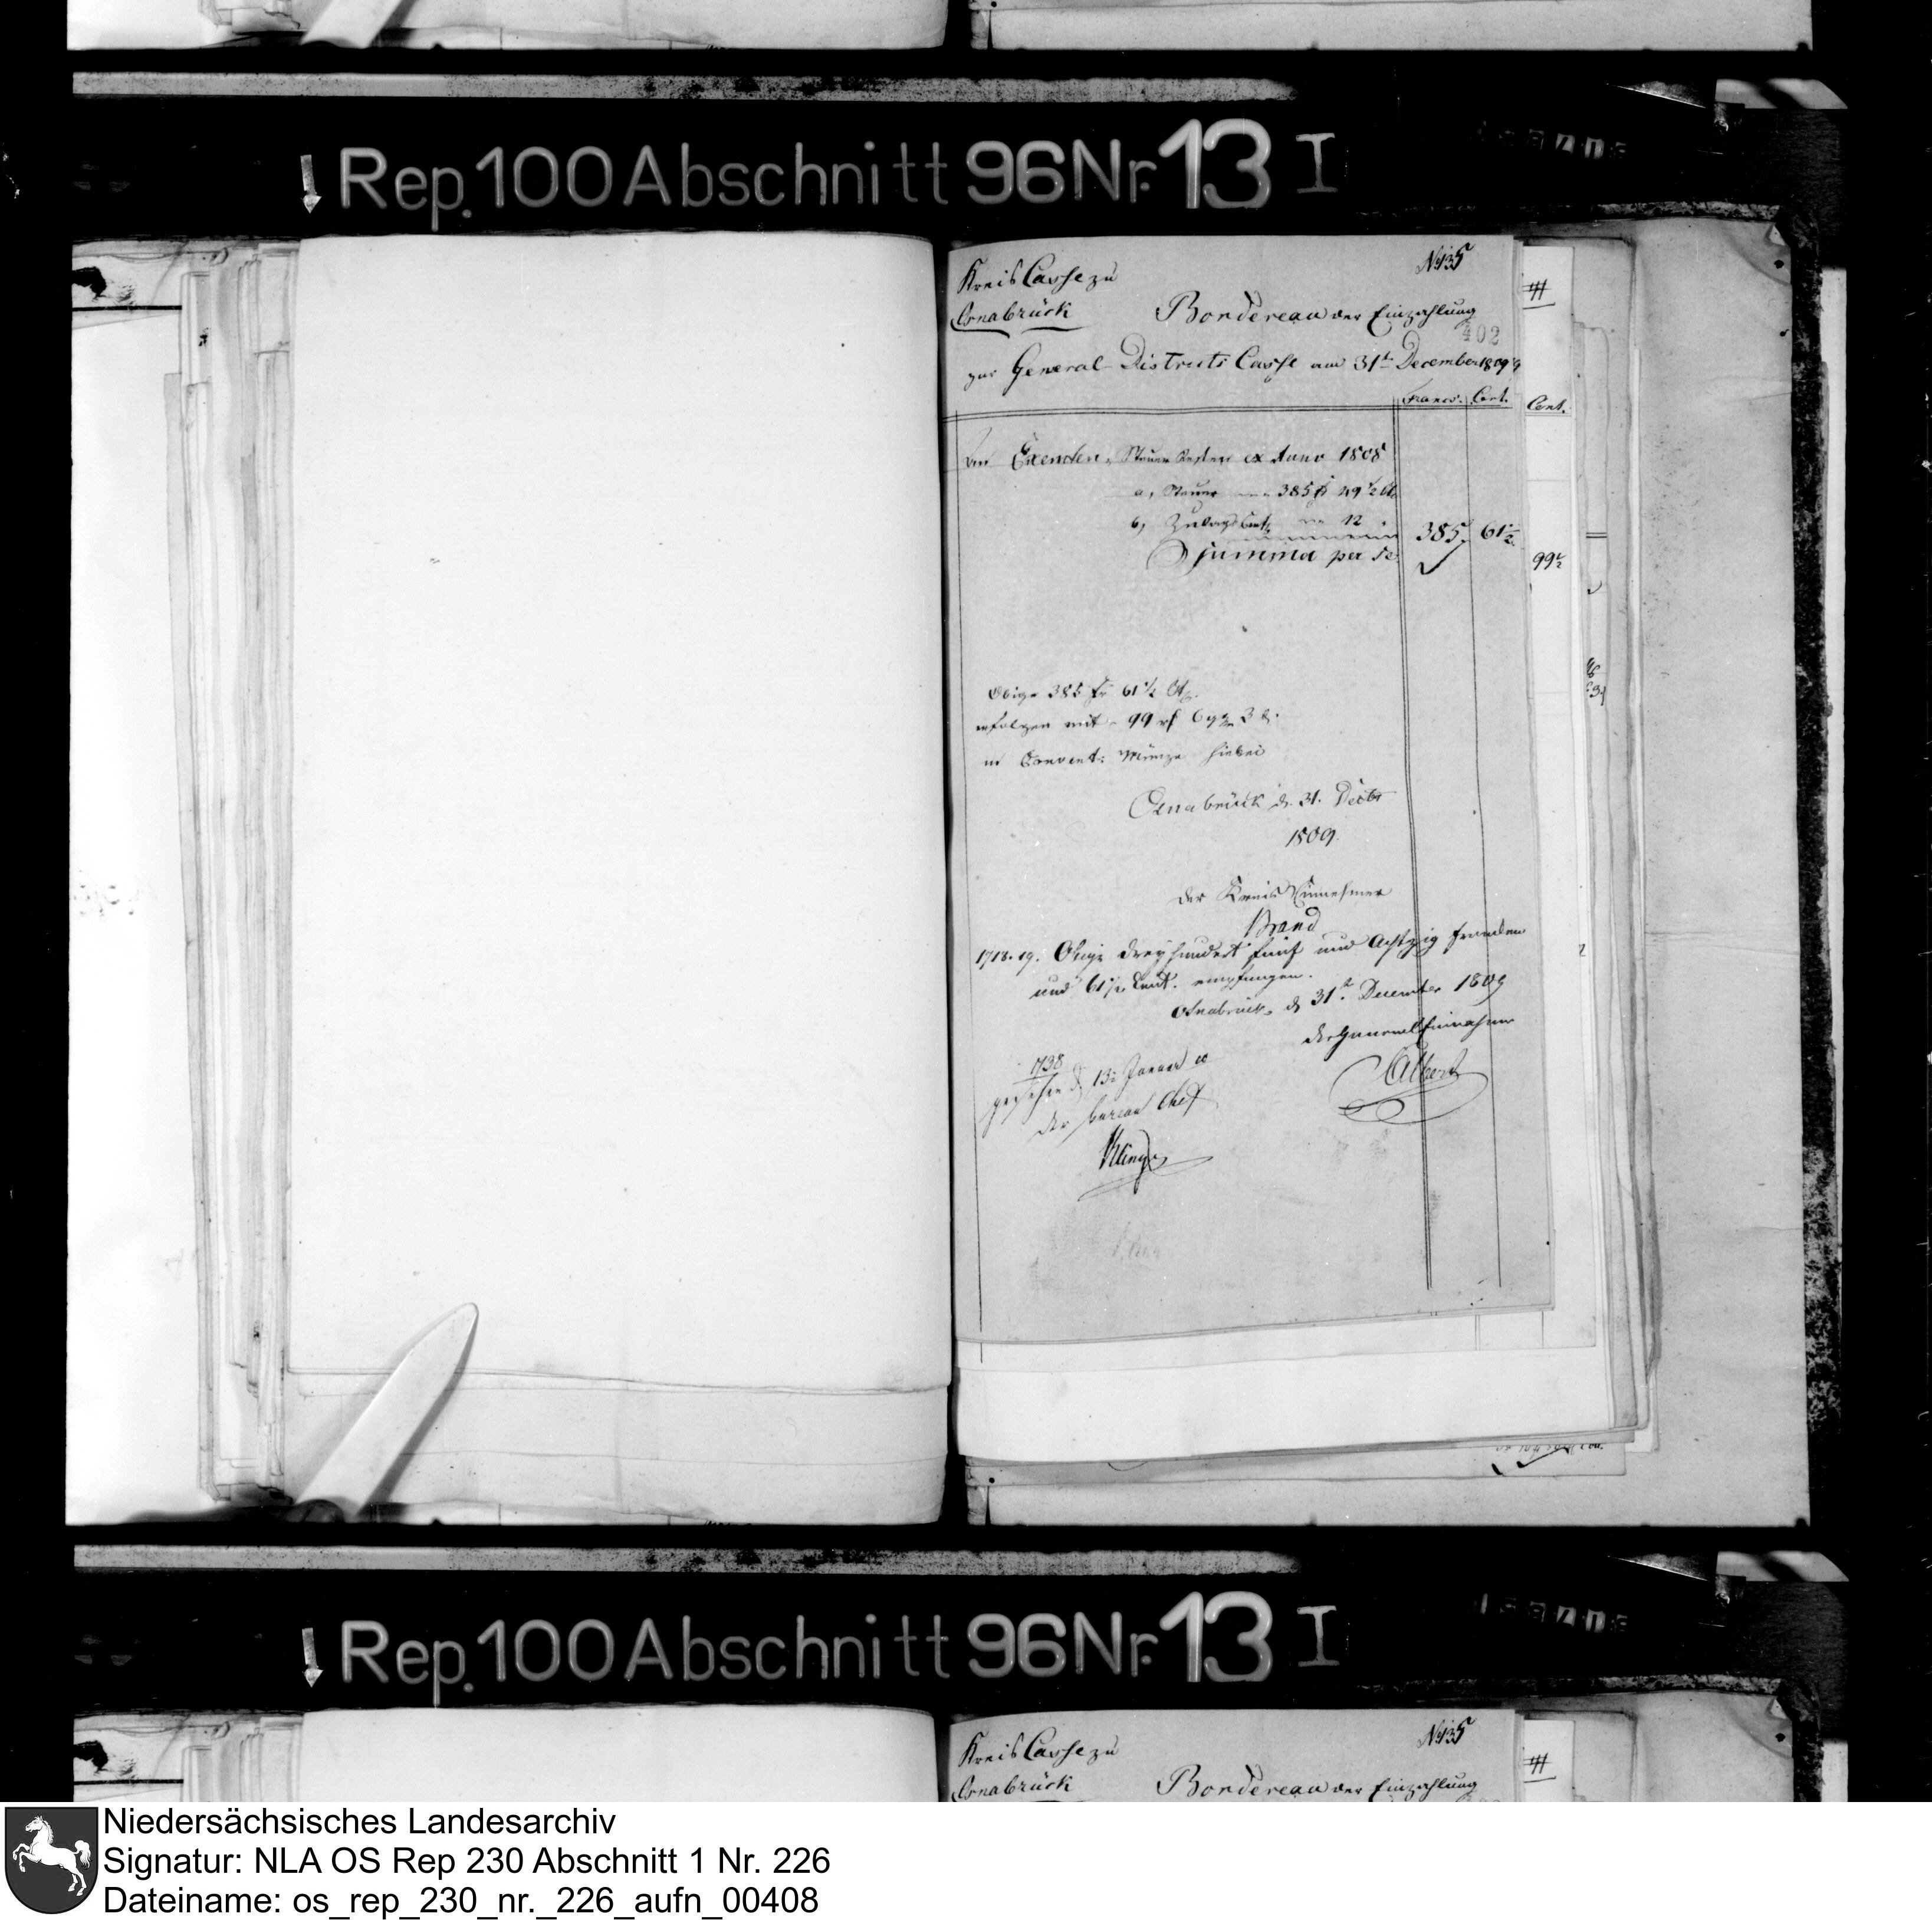 Rep. 100 Abschnitt 96 Nr. 13 I
Kreis Casse zu
Osnabrück
No 135
Bordereau der Einzahlung
402
zur General-Districts Casse am 31t December 1809
Francs. Cent.
Cent.
An Exemten-Steuer Reste ex Anno 1808
a, Steuer 385 fr 49 1/2 Ct.
b, Zulags Cent. 12
385. 61 1/2
Summa per se
99 1/2
Obige 385 fr 61 1/2 Ct.
erfolgen mit 99 rt 6 ggr 3 d.
in Convent: Münze hiebei
Osnabrück d. 31. Decbr
1809.
Der Kreis Einnehmer
Brand
1718. 19. Obige dreyhundert fünf und Achtzig Franken
und 61 1/2 Cent. empfangen.
Osnabrück d 31t December 1809
der General Einnehmer
Albert
1738
gesehen d. 13. Januar 10
der bureau Chef
Kling
Rep. 100 Abschnitt 96 Nr. 13 I
Kreis Casse zu
Osnabrück
No 135
Bordereau der Einzahlung
Niedersächsisches Landesarchiv
Signatur: NLA OS Rep 230 Abschnitt 1 Nr. 226
Dateiname: os_rep_230_nr._226_aufn_00408